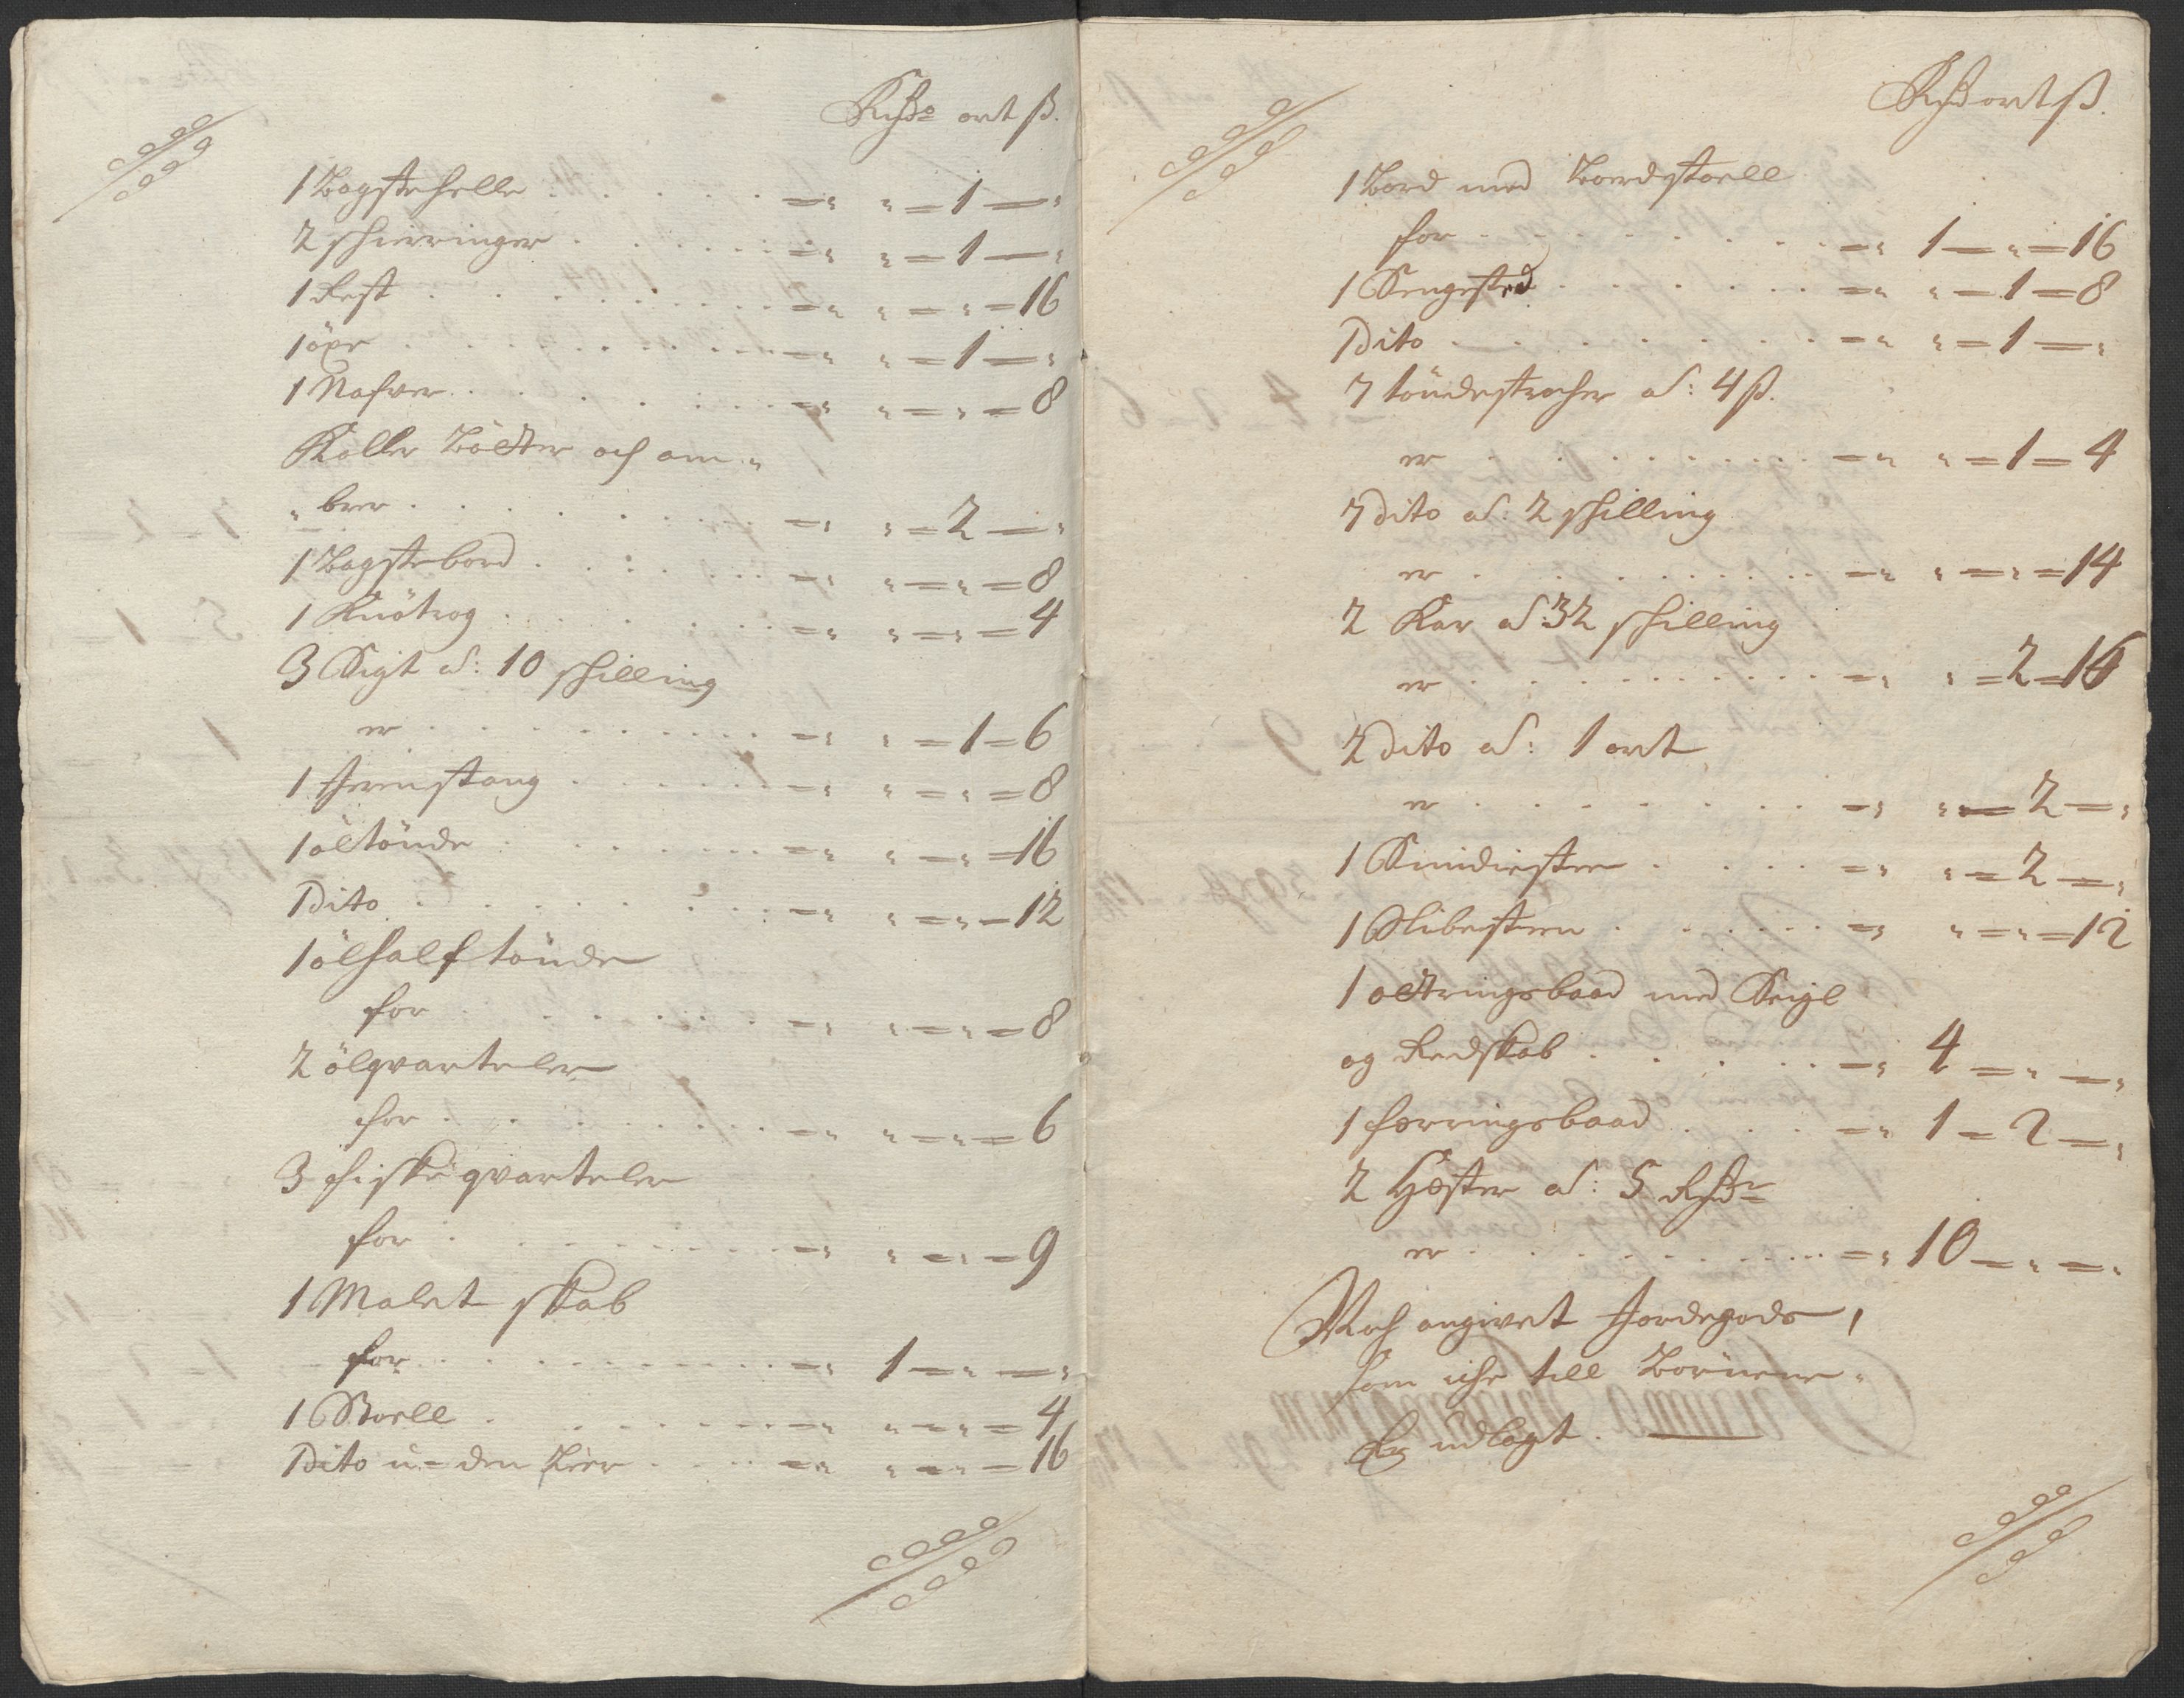 Rixdr ort ß.
1 Bagstehelle . . . . = " " = 1 — "
2 schierringer . . . . = " " = 1 — "
1 Rest . . . . = " " = " = 16
1 öxe . . . . = " " = 1 — "
1 Nafver . . . . = " " = " = 8
Koller Bötter och am "
" brer . . . . = " " = 2 — "
1 Bagstebord . . . . = " " = " = 8
1 Knötrog . . . . = " " = " = 4
3 Sigt a: 10 schilling
er . . . . = " " = 1 = 6
1 Jernstang . . . . = " " = " = 8
1 öltönde . . . . = " " = " = 16
1 Dito . . . . = " " = " = 12
1 ölhalftönde
for . . . . = " " = " = 8
2 ölqvarteler
for . . . . = " " = " = 6
3 fiske qvarteler
for . . . . = " " = " = 9
1 Malet skab
for . . . . = " 1 = " = "
1 Stoell . . . . = " " = " = 4
1 Dito u-den . . . . = " " = " = 16
Rixd ort ß.
1 Bord med Bordstoell
for . . . . = " 1 — " = 16
1 Sengested . . . . = " " = 1 = 8
1 Dito . . . . = " " = 1 — "
7 töndestracher a: 4 ß.
er . . . . = " " = 1 = 4
7 dito a: 2 schilling
er . . . . = " " = " = 14
2 Kar a: 32 schilling
er . . . . = " " = 2 = 16
2 dito a: 1 ort
er . . . . = " " = 2 = "
1 Smidiesteen . . . . = " " = 2 = "
1 Slibesteen . . . . = " " = " = 12
1 ottringsbaad med Seigl
og Redskab . . . . = " 4 = " = "
1 færringsbaad . . . . = " 1 = 2 = "
2 Hæster a: 5 Rixdr
er . . . . = " 10 = " = "
Noch angivet Jordegods,
som iche till Börnene
Er udlagt. —